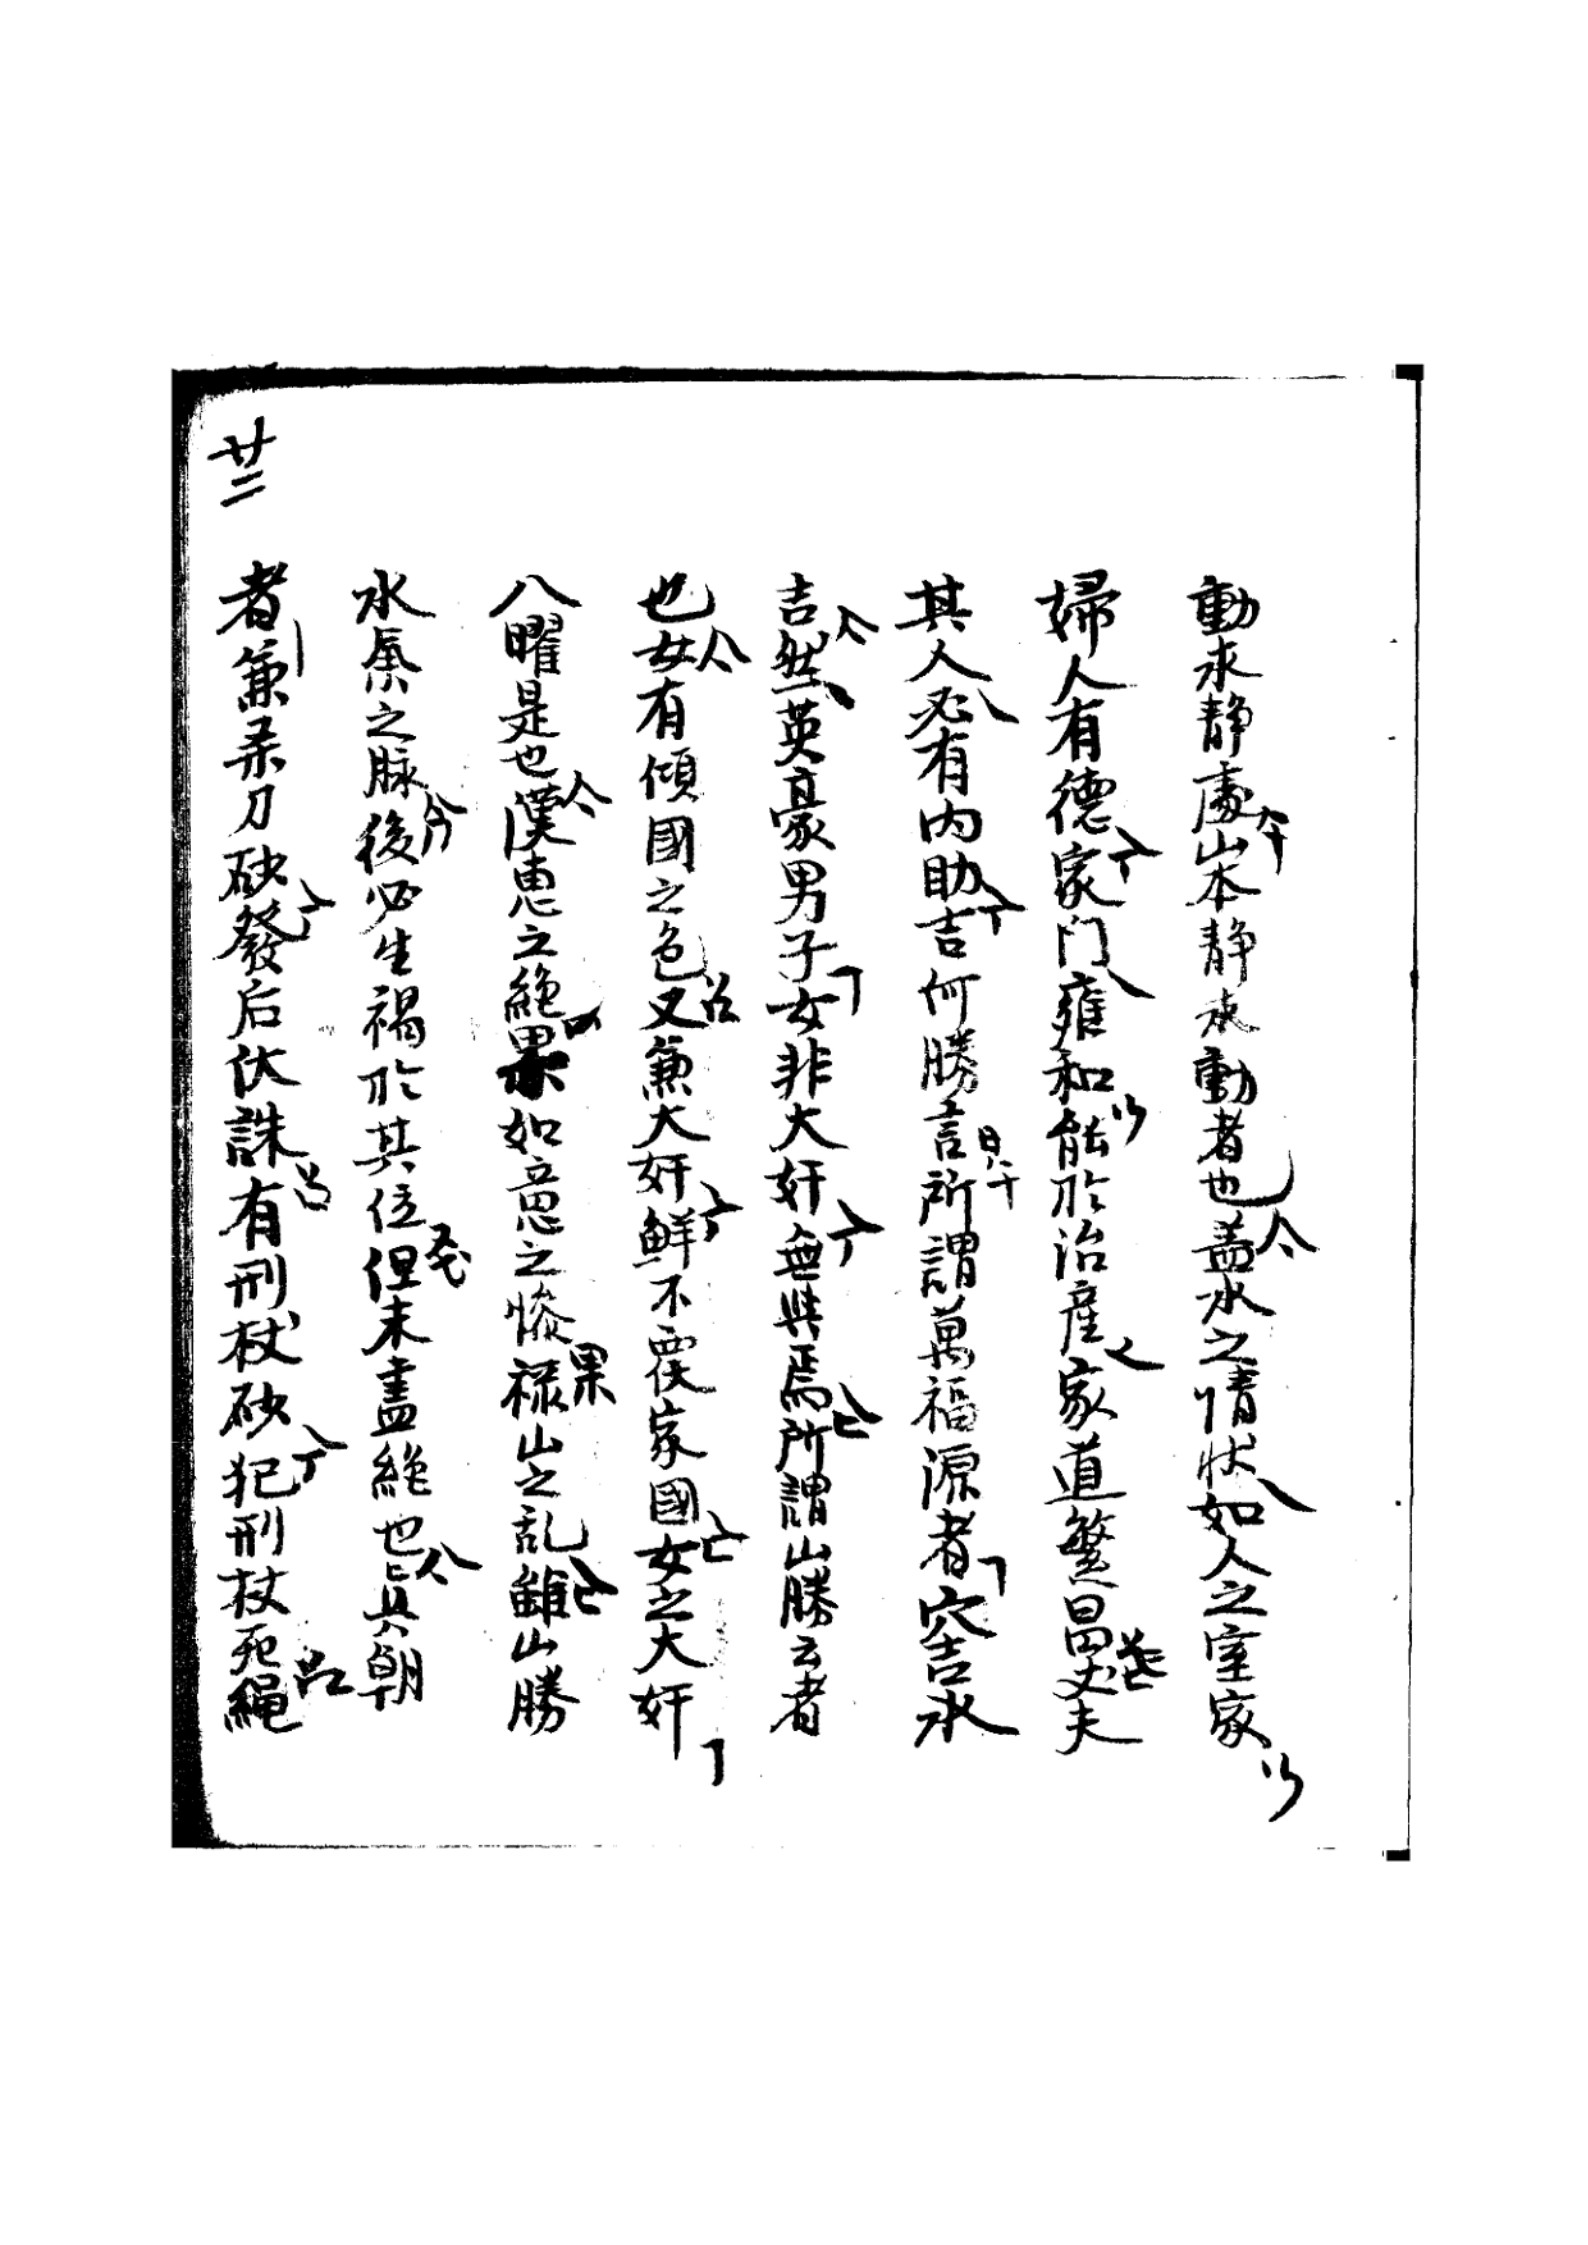 動求静處山本静求動者也盖水之情状如人之室家
婦人有德家门雍和能扵治産家道繁昌丈夫
其人必有内助吉何勝言所謂萬福源者穴吉水
吉然英豪男子女非大奸無與焉所謂山勝云者
也女有傾國之色又兼大奸鮮不覆家國女之大奸
八曜是也漢惠之絶果如意之慘禄山之乱雖山勝
水氣之脉後必生禍扵其位但未盡絶也眞朝
者兼柔刀砂發后伏誅有刑杖砂犯刑杖死縄
廿二